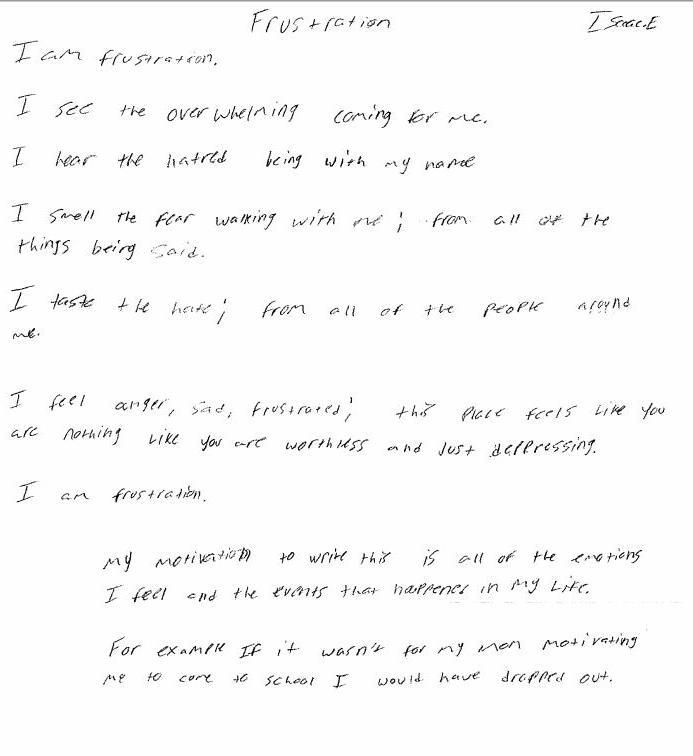 Frustration Isaac.E
I am frustration.
I see the overwhelming coming for me.
I hear the hatred being with my name
I smell the fear walking with me; from all of the
things being said.
I taste the hate; from all of the people around
me.
I feel anger, sad, frustrated; this place feels like you
are nothing like you are worthless and just deppressing.
I am frustration.
My motivation to write this is all of the emotions
I feel and the events that happened in my Life.
For example If it wasn't for my mom motivating
me to come to school I would have dropped out.